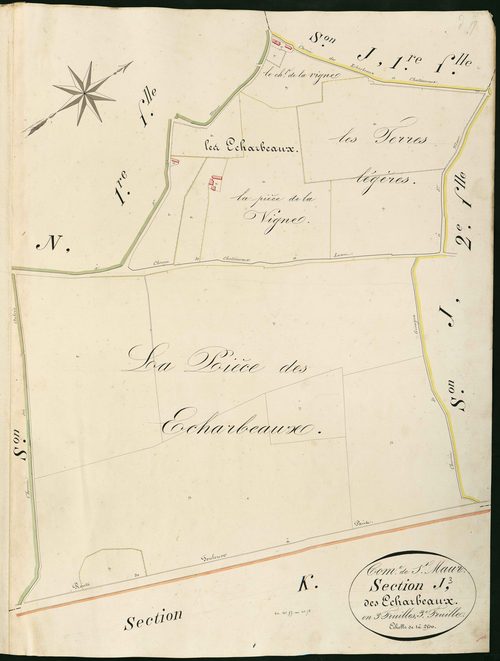 S.on J, 1.re f.lle
le ch.p de la vigne
les Echarbeaux.
les Terres
légéres.
la pièce de la
Vigne.
S.on N, 1.re f.lle
S.on J, 2.e f.lle
Chemin de Chateauroux à
La Pièce des
Echarbeaux.
Route de Toulouse à Paris
Section K.
Com.ne de S.t Maur
Section J,3
des Echarbeaux.
en 3 Feuilles, 3.e Feuille
Echelle de 1 à 2500.